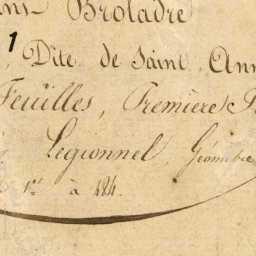 ns Broladre
1
Dite de Saint Ann
Feuilles, Première &
Legionnel, Géomètre
1re à 484.